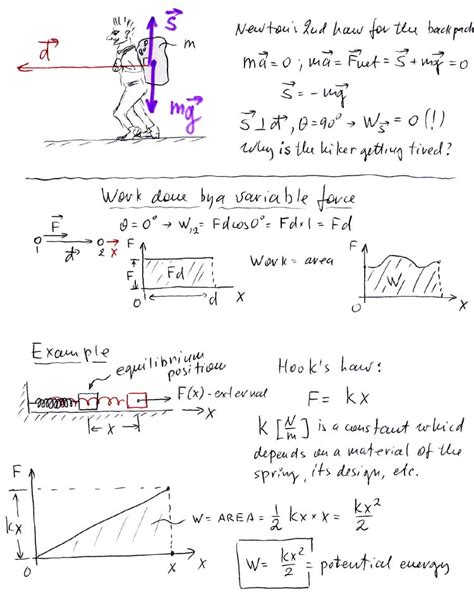 S⃗
m
d⃗
mg⃗
Newton's 2nd Law for the backpack
ma⃗ = 0 ; ma⃗ = F⃗net = S⃗ + mg⃗ = 0
S⃗ = - mg⃗
S⃗ ⊥ d⃗, θ = 90° → W_S⃗ = 0 (!)
Why is the hiker getting tired?
Work done by a variable force
θ = 0° → W₁₂ = Fd cos 0° = Fd × 1 = Fd
F⃗
1 d⃗ 2 x
F
F
Fd
0 d x
Work = area
F
W
0 x
Example
equilibrium
position
F(x) - external
x
x
Hook's Law:
F = kx
k [N/m] is a constant which
depends on a material of the
spring, its design, etc.
F
kx
0 x x
W = AREA = 1/2 kx × x = kx²/2
W = kx²/2 = potential energy